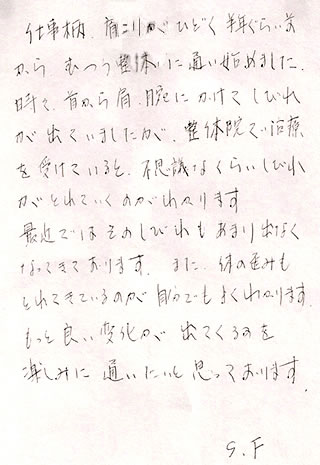 仕事柄、肩こりがひどく半年ぐらい前
から むつう整体に通い始めました。
時々、首から肩、腕にかけてしびれ
が出ていましたが、整体院で治療
を受けていると、不思議なくらいしびれ
がとれていくのがわかります
最近ではそのしびれもあまり出なく
なってきております。また、体の歪みも
とれてきているのが自分でもよくわかります。
もっと良い変化が出てくるのを
楽しみに通いたいと思っております。
S.F